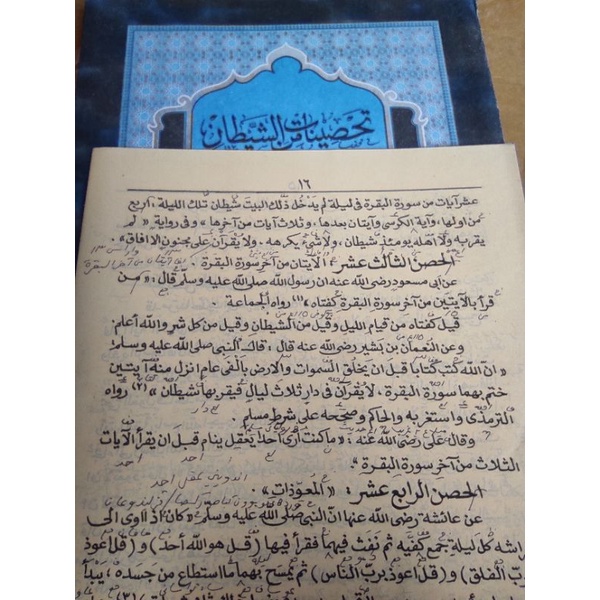 تحصينات من الشيطان
١٦
عشر آيات من سورة البقرة فى ليلة لم يدخل ذلك البيت شيطان تلك الليلة، أربع
من اولها، وآية الكرسى وآيتان بعدها، وثلاث آيات من آخرها» وفى رواية «لم
يقربه ولا أهله يومئذ شيطان، ولا شئ يكرهه، ولا يقرآن على مجنون الا افاق».
الحصن الثالث عشر: الآيتان من آخر سورة البقرة.
عن ابى مسعود رضى الله عنه ان رسول الله صلى الله عليه وسلم قال: «من
قرأ بالآيتين من آخر سورة البقرة كفتاه»(١) رواه الجماعة.
قيل كفتاه من قيام الليل وقيل من الشيطان وقيل من كل شر والله أعلم.
وعن النعمان بن بشير رضى الله عنه قال: قال النبى صلى الله عليه وسلم:
«ان الله كتب كتابا قبل ان يخلق السموات والارض بألفى عام انزل منه آيتين
ختم بهما سورة البقرة، لا يقرآن فى دار ثلاث ليال فيقربها شيطان»(٢) رواه
الترمذى واستغربه والحاكم وصححه على شرط مسلم.
وقال على رضى الله عنه: «ما كنت أرى أحدا يعقل ينام قبل ان يقرأ الآيات
الثلاث من آخر سورة البقرة».
الحصن الرابع عشر: «المعوذات».
عن عائشة رضى الله عنها ان النبى صلى الله عليه وسلم «كان اذا اوى الى
فراشه كل ليلة جمع كفيه ثم نفث فيهما فقرأ فيها (قل هو الله أحد) و (قل أعوذ
برب الفلق) و (قل أعوذ برب الناس) ثم يمسح بهما ما استطاع من جسده، يبدأ